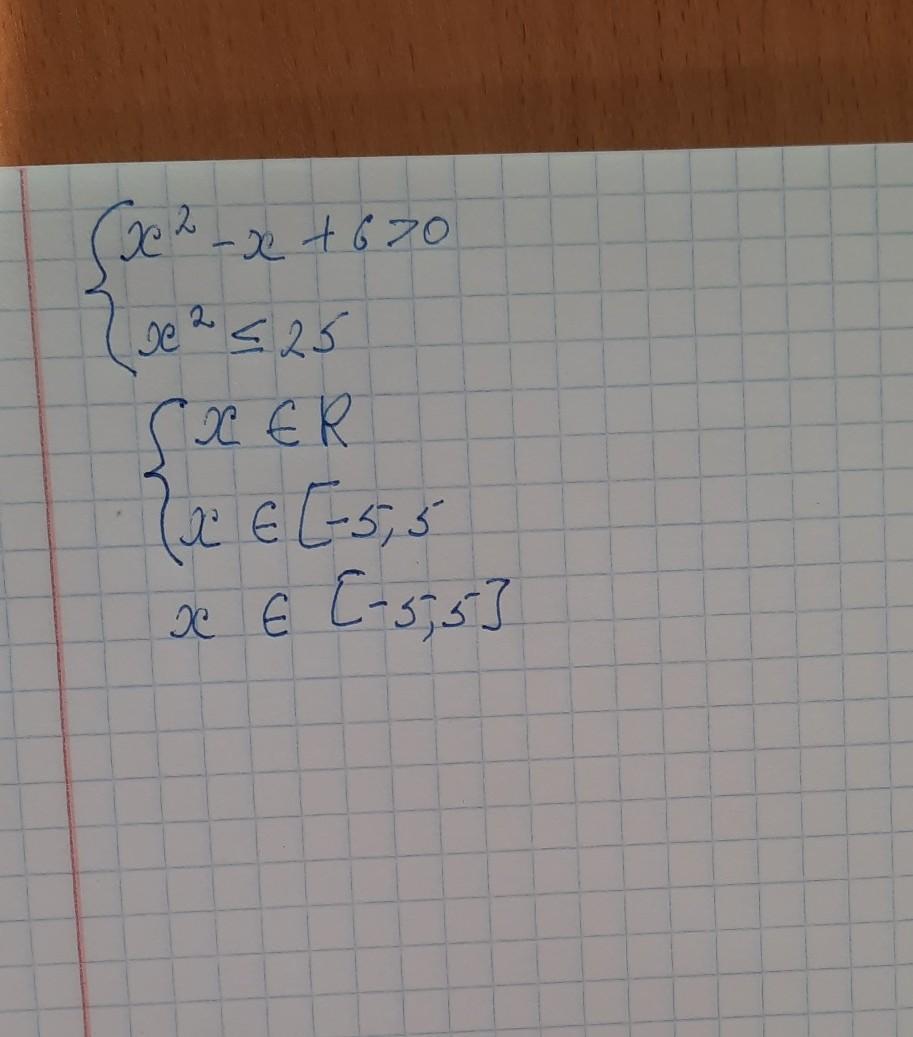 {x² - x + 6 > 0
{x² ≤ 25
{x ∈ R
{x ∈ [-5; 5
x ∈ [-5; 5]